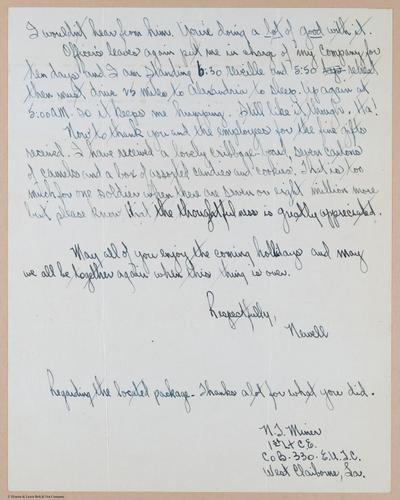 I wouldn't hear from him. You're doing a lot of good with it.
Officers leaves again put me in charge of my Company for
ten days and I am standing 6:30 reveille and 5:50 retreat
then must drive 25 miles to Alexandria to sleep. Up again at
5:00 AM. so it keeps me humping. Still like it though. Ha!
Now to thank you and the employees for the fine gifts
received. I have received a lovely cribbage board, seven cartons
of camels and a box of assorted candies and cookies. That is too
much for one soldier when there are seven or eight million more
but please know that the thoughtfulness is greatly appreciated.
May all of you enjoy the coming holidays and may
we all be together again when this thing is over.
Respectfully,
Newell
Regarding the located package - Thanks a lot for what you did.
N.J. Miner
1st Lt C.E.
Co B - 330 - E.U.T.C.
West Claiborne, La.